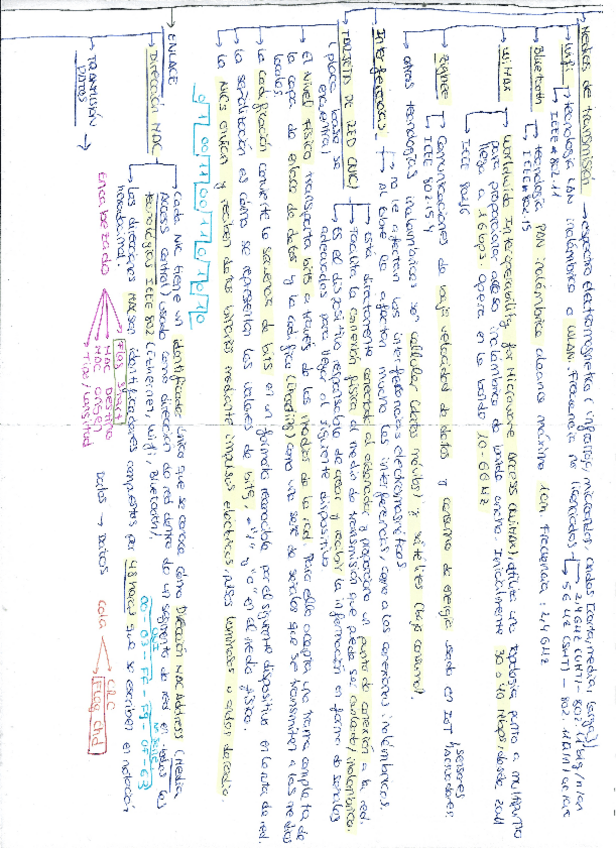 Medios de transmisión → espectro electromagnético (infrarrojos, microondas, ondas (corta, media, larga))
Wifi → tecnología LAN inalámbrica o WLAN. Frecuencia no licenciada
IEEE 802.11
2,4 GHz (UHF) - 802.11 b/g/n/ax
5 GHz (SHF) - 802.11 a/n/ac/ax
Bluetooth → tecnología PAN inalámbrica alcance máximo 10m. Frecuencia: 2,4 GHz
IEEE 802.15
WiMAX → Worldwide Interoperability for Microwave Access (WiMAX), utiliza una topología punto a multipunto
para proporcionar acceso inalámbrico de banda ancha. Inicialmente 30 o 40 Mbps, desde 2011
llega a 1 Gbps. Opera en la banda 10-66 Hz
IEEE 802.16
Zigbee → Comunicaciones de baja velocidad de datos y consumo de energía usado en IoT
IEEE 802.15.4
otras tecnologías inalámbricas son celular (datos móviles) y satélites (bajo consumo).
Interferencias → no le afectan las interferencias electromagnéticas
Al cobre le afectan mucho las interferencias, como a las conexiones inalámbricas.
TARJETA DE RED (NIC)
está directamente conectada al ordenador y proporciona un punto de conexión a la red.
(placa base se encuentra)
Facilita la conexión física al medio de transmisión que puede ser cableado/inalámbrico.
Es el dispositivo responsable de crear y recibir la información en forma de señales
adecuadas para llegar al siguiente dispositivo
El Nivel Físico transporta bits a través de los medios de la red. Para ello acepta una trama completa de
la capa de enlace de datos y la codifica como una serie de señales que se transmiten a los medios
locales
La codificación convierte la secuencia de bits en un formato reconocible por el siguiente dispositivo en la ruta de red.
La señalización es cómo se representan los valores de bits, "1" y "0" en el medio físico.
La NICs envían y reciben datos binarios mediante impulsos eléctricos, pulsos luminosos u ondas de radio.
ENLACE
Dirección MAC
Cada NIC tiene un identificador único que se conoce como Dirección MAC Address (Media
Access control) usada como dirección de red dentro de un segmento de red en todas las
tecnologías IEEE 802 (Ethernet, Wifi, Bluetooth).
00-03-FF-F9-0F-63
Las direcciones MAC son identificadores compuestos por 48 bits que se escriben en notación
hexadecimal.
TRANSMISIÓN
DATOS →
Encabezado
Flag Start
MAC Destino
MAC Origen
Tipo/Longitud
Datos → Datos
Cola
CRC
Flag End